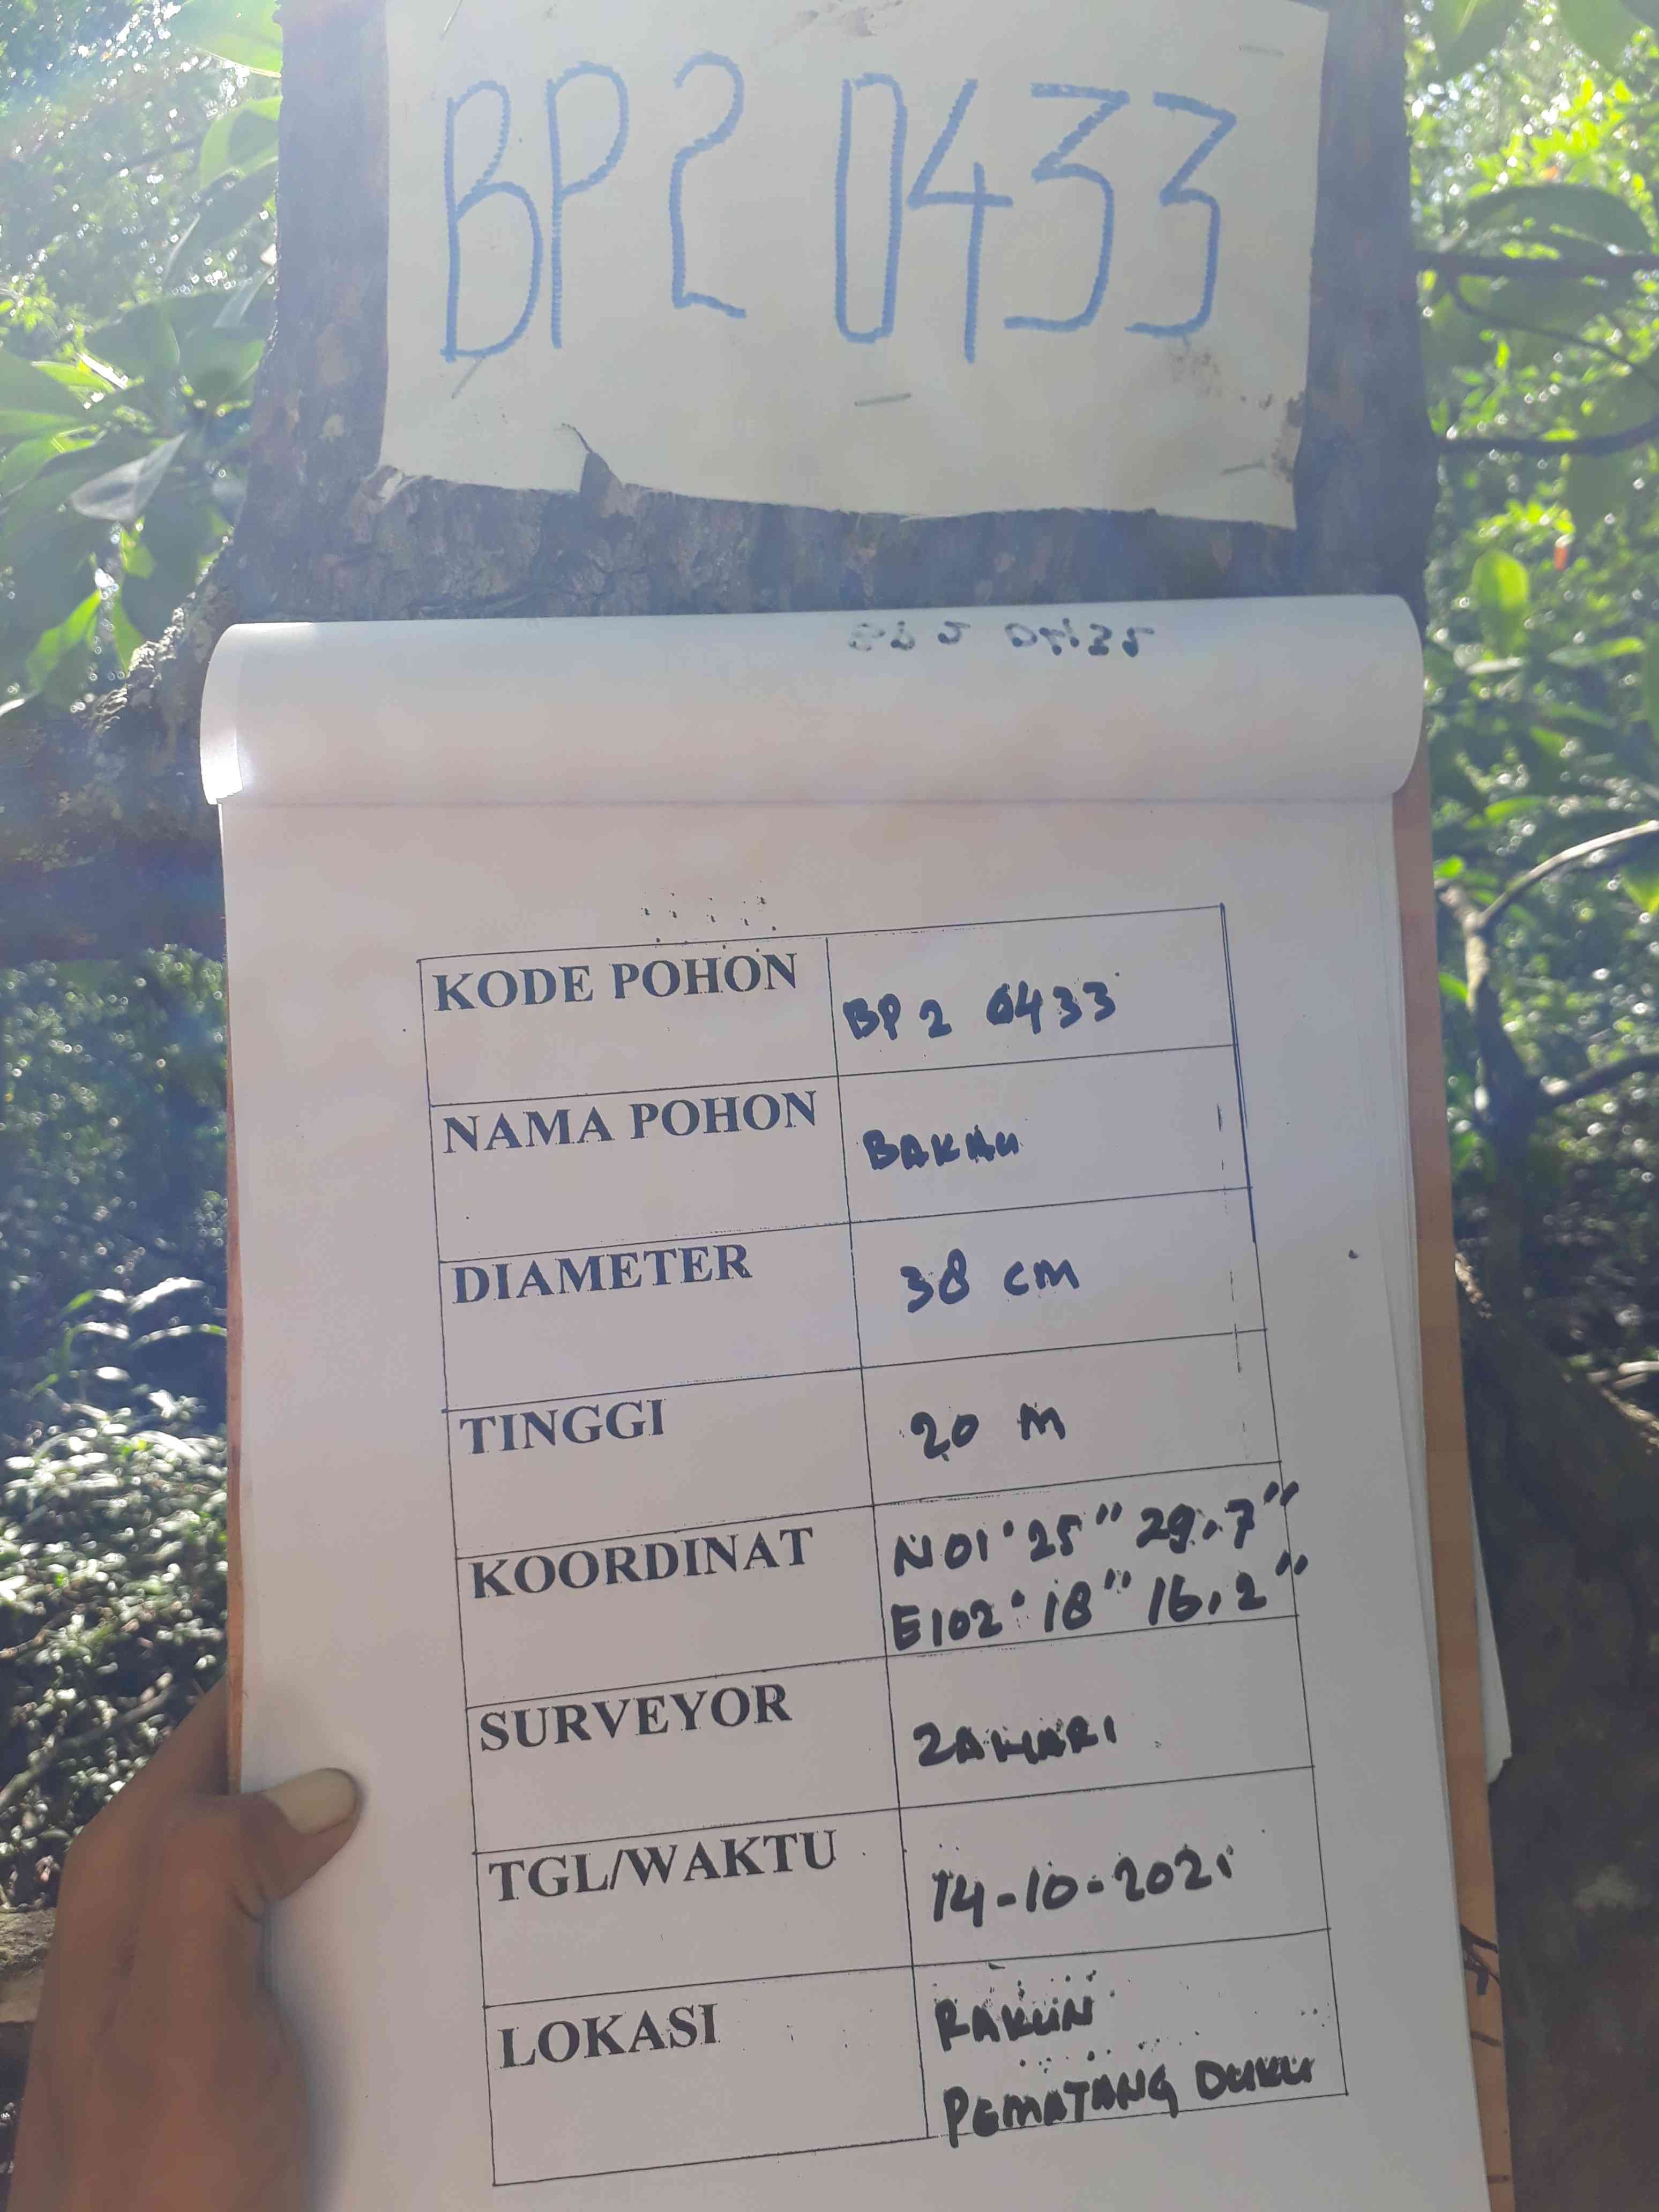 BP2 0433
KODE POHON BP2 0433
NAMA POHON BAKAU
DIAMETER 38 cm
TINGGI 20 M
KOORDINAT N01°25"29.7"
E102°18"16,2"
SURVEYOR ZAHARI
TGL/WAKTU 14-10-2021
LOKASI RAKUN
PEMATANG DUKU